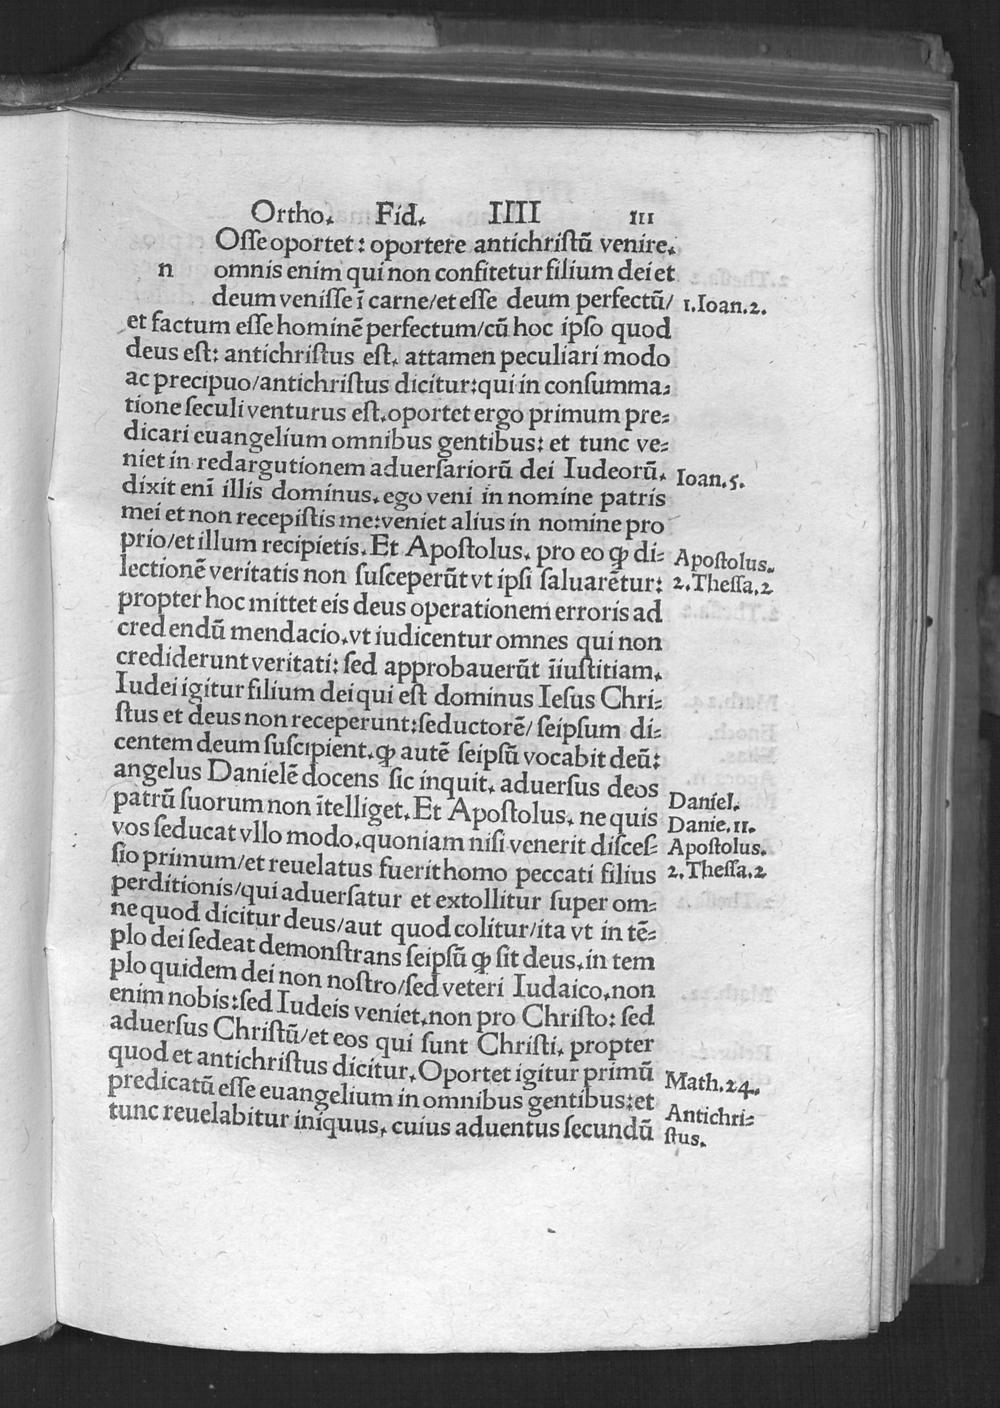 Ortho. Fid. IIII III
Oſſe oportet: oportere antichriſtū venire.
n omnis enim qui non confitetur filium dei et
deum veniſſe ī carne/et eſſe deum perfectū/ 1.Ioan.2.
et factum eſſe hominē perfectum/cū hoc ipſo quod
deus eſt: antichriſtus eſt. attamen peculiari modo
ac precipuo/antichriſtus dicitur:qui in conſumma⸗
tione ſeculi venturus eſt.oportet ergo primum pre⸗
dicari euangelium omnibus gentibus: et tunc ve⸗
niet in redargutionem aduerſariorū dei Iudeorū. Ioan.5.
dixit enī illis dominus.ego veni in nomine patris
mei et non recepiſtis me:veniet alius in nomine pro
prio/et illum recipietis.Et Apoſtolus. pro eo ꝙ di⸗ Apoſtolus.
lectionē veritatis non ſuſceperūt vt ipſi ſaluarētur: 2.Theſſa.2
propter hoc mittet eis deus operationem erroris ad
credendū mendacio.vt iudicentur omnes qui non
crediderunt veritati: ſed approbauerūt īiuſtitiam.
Iudei igitur filium dei qui eſt dominus Ieſus Chri⸗
ſtus et deus non receperunt:ſeductorē/ ſeipſum di⸗
centem deum ſuſcipient.ꝙ autē ſeipſū vocabit deū:
angelus Danielē docens ſic inquit. aduerſus deos Daniel.
patrū ſuorum non ītelliget.Et Apoſtolus. ne quis Danie.11.
vos ſeducat vllo modo.quoniam niſi venerit diſceſ⸗ Apoſtolus.
ſio primum/et reuelatus fuerit homo peccati filius 2.Theſſa.2
perditionis/qui aduerſatur et extollitur ſuper om⸗
ne quod dicitur deus/aut quod colitur/ita vt in tē⸗
plo dei ſedeat demonſtrans ſeipſū ꝙ ſit deus.in tem
plo quidem dei non noſtro/ſed veteri Iudaico.non
enim nobis:ſed Iudeis veniet.non pro Chriſto: ſed
aduerſus Chriſtū/et eos qui ſunt Chriſti. propter
quod et antichriſtus dicitur.Oportet igitur primū Math.24.
predicatū eſſe euangelium in omnibus gentibus:et Antichri⸗
tunc reuelabitur iniquus. cuius aduentus ſecundū ſtus.